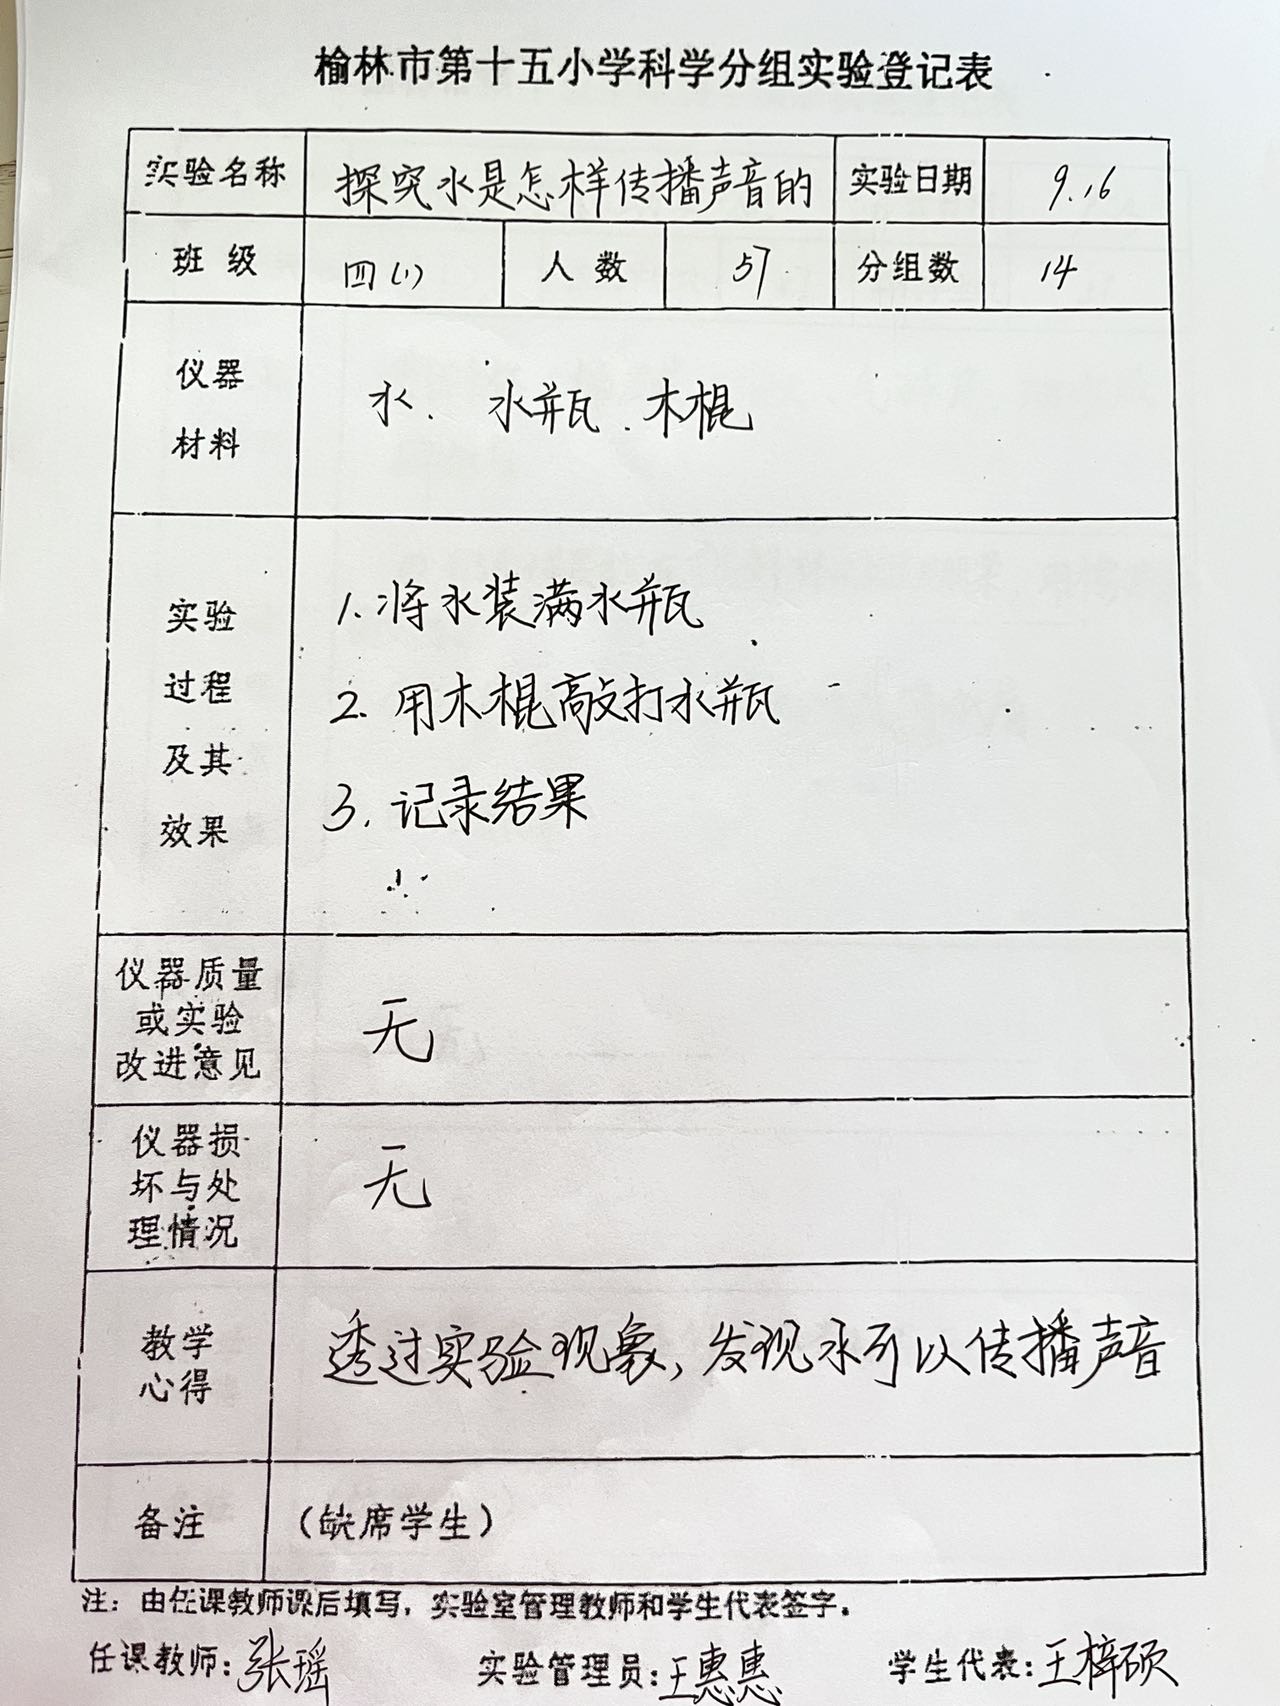 榆林市第十五小学科学分组实验登记表
实验名称 探究水是怎样传播声音的 实验日期 9.16
班级 四(1) 人数 57 分组数 14
仪器
材料
水. 水瓶. 木棍
实验
过程
及其
效果
1. 将水装满水瓶
2. 用木棍敲打水瓶
3. 记录结果
仪器质量
或实验
改进意见
无
仪器损
坏与处
理情况
无
教学
心得
透过实验现象,发现水可以传播声音
备注 (缺席学生)
注：由任课教师课后填写，实验室管理教师和学生代表签字。
任课教师:张瑶 实验管理员:王惠惠 学生代表:王梓硕